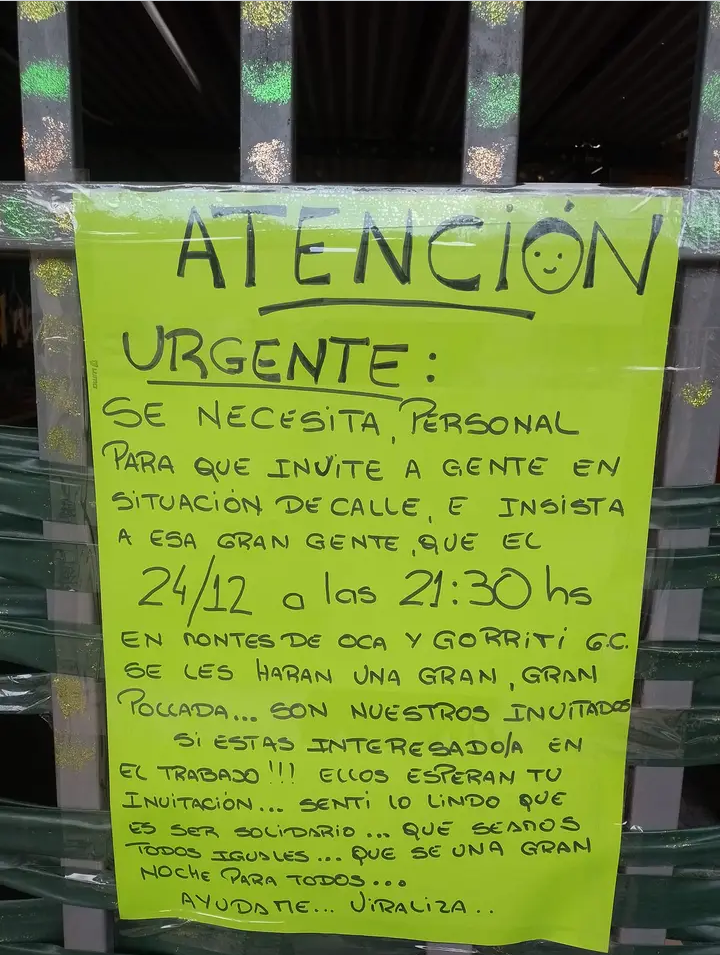 ATENCIÓN
URGENTE:
SE NECESITA, PERSONAL
PARA QUE INVITE A GENTE EN
SITUACIÓN DE CALLE, E INSISTA
A ESA GRAN GENTE, QUE EL
24/12 a las 21:30 hs
EN MONTES DE OCA Y GORRITI G.C.
SE LES HARAN UNA GRAN, GRAN
POLLADA... SON NUESTROS INVITADOS
SI ESTAS INTERESADO/A EN
EL TRABAJO!!! ELLOS ESPERAN TU
INVITACIÓN... SENTI LO LINDO QUE
ES SER SOLIDARIO... QUE SEAMOS
TODOS IGUALES... QUE SE UNA GRAN
NOCHE PARA TODOS...
AYUDAME... VIRALIZA..